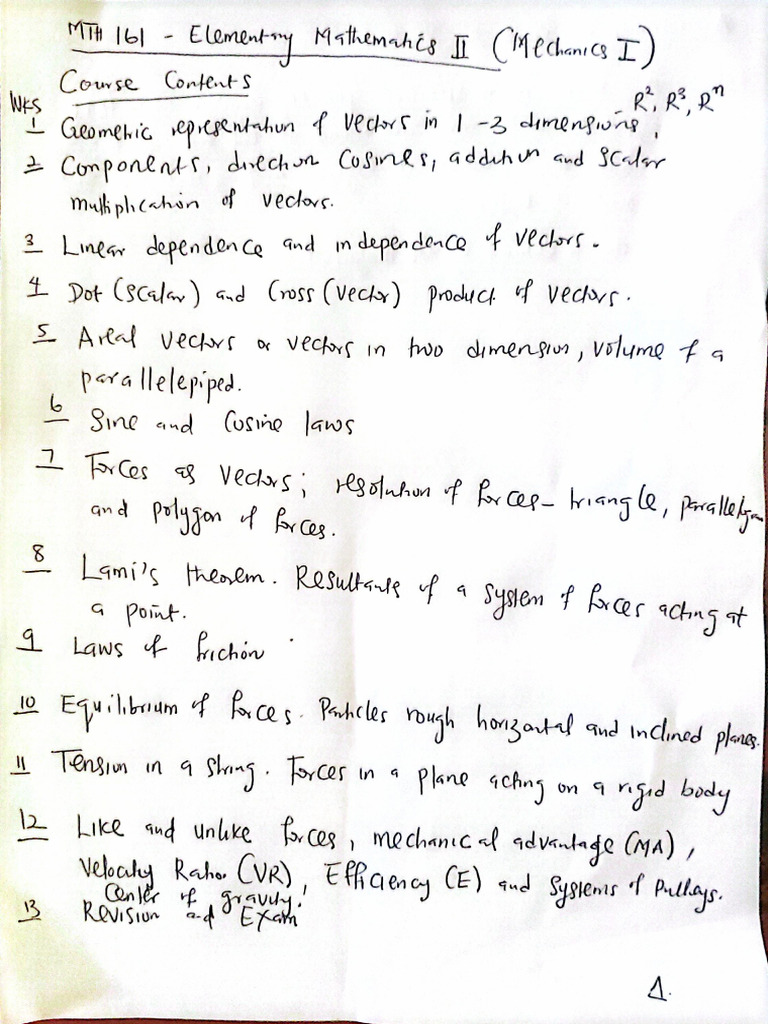 MTH 161 - Elementary Mathematics II (Mechanics I)
Course Contents
Wks
- R², R³, Rⁿ
1 Geometric representation of vectors in 1-3 dimensions,
2 Components, direction Cosines, addition and scalar
multiplication of vectors.
3 Linear dependence and independence of vectors.
4 Dot (scalar) and Cross (vector) product of vectors.
5 Areal vectors or vectors in two dimension, volume of a
parallelepiped.
6 Sine and Cosine laws
7 Forces as vectors; resolution of forces- triangle, parallelogram
and polygon of forces.
8 Lami's theorem. Resultants of a system of forces acting at
a point.
9 Laws of friction
10 Equilibrium of forces. Particles rough horizontal and inclined planes.
11 Tension in a string. Forces in a plane acting on a rigid body
12 Like and unlike forces, mechanical advantage (MA),
Velocity Ratio (VR), Efficiency (E) and Systems of Pulleys.
Center of gravity.
13 Revision and Exam